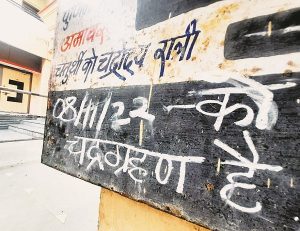 अमावस
चतुर्थी को चंद्रोदय रात्री
08/11/22 - को
चंद्रग्रहण है